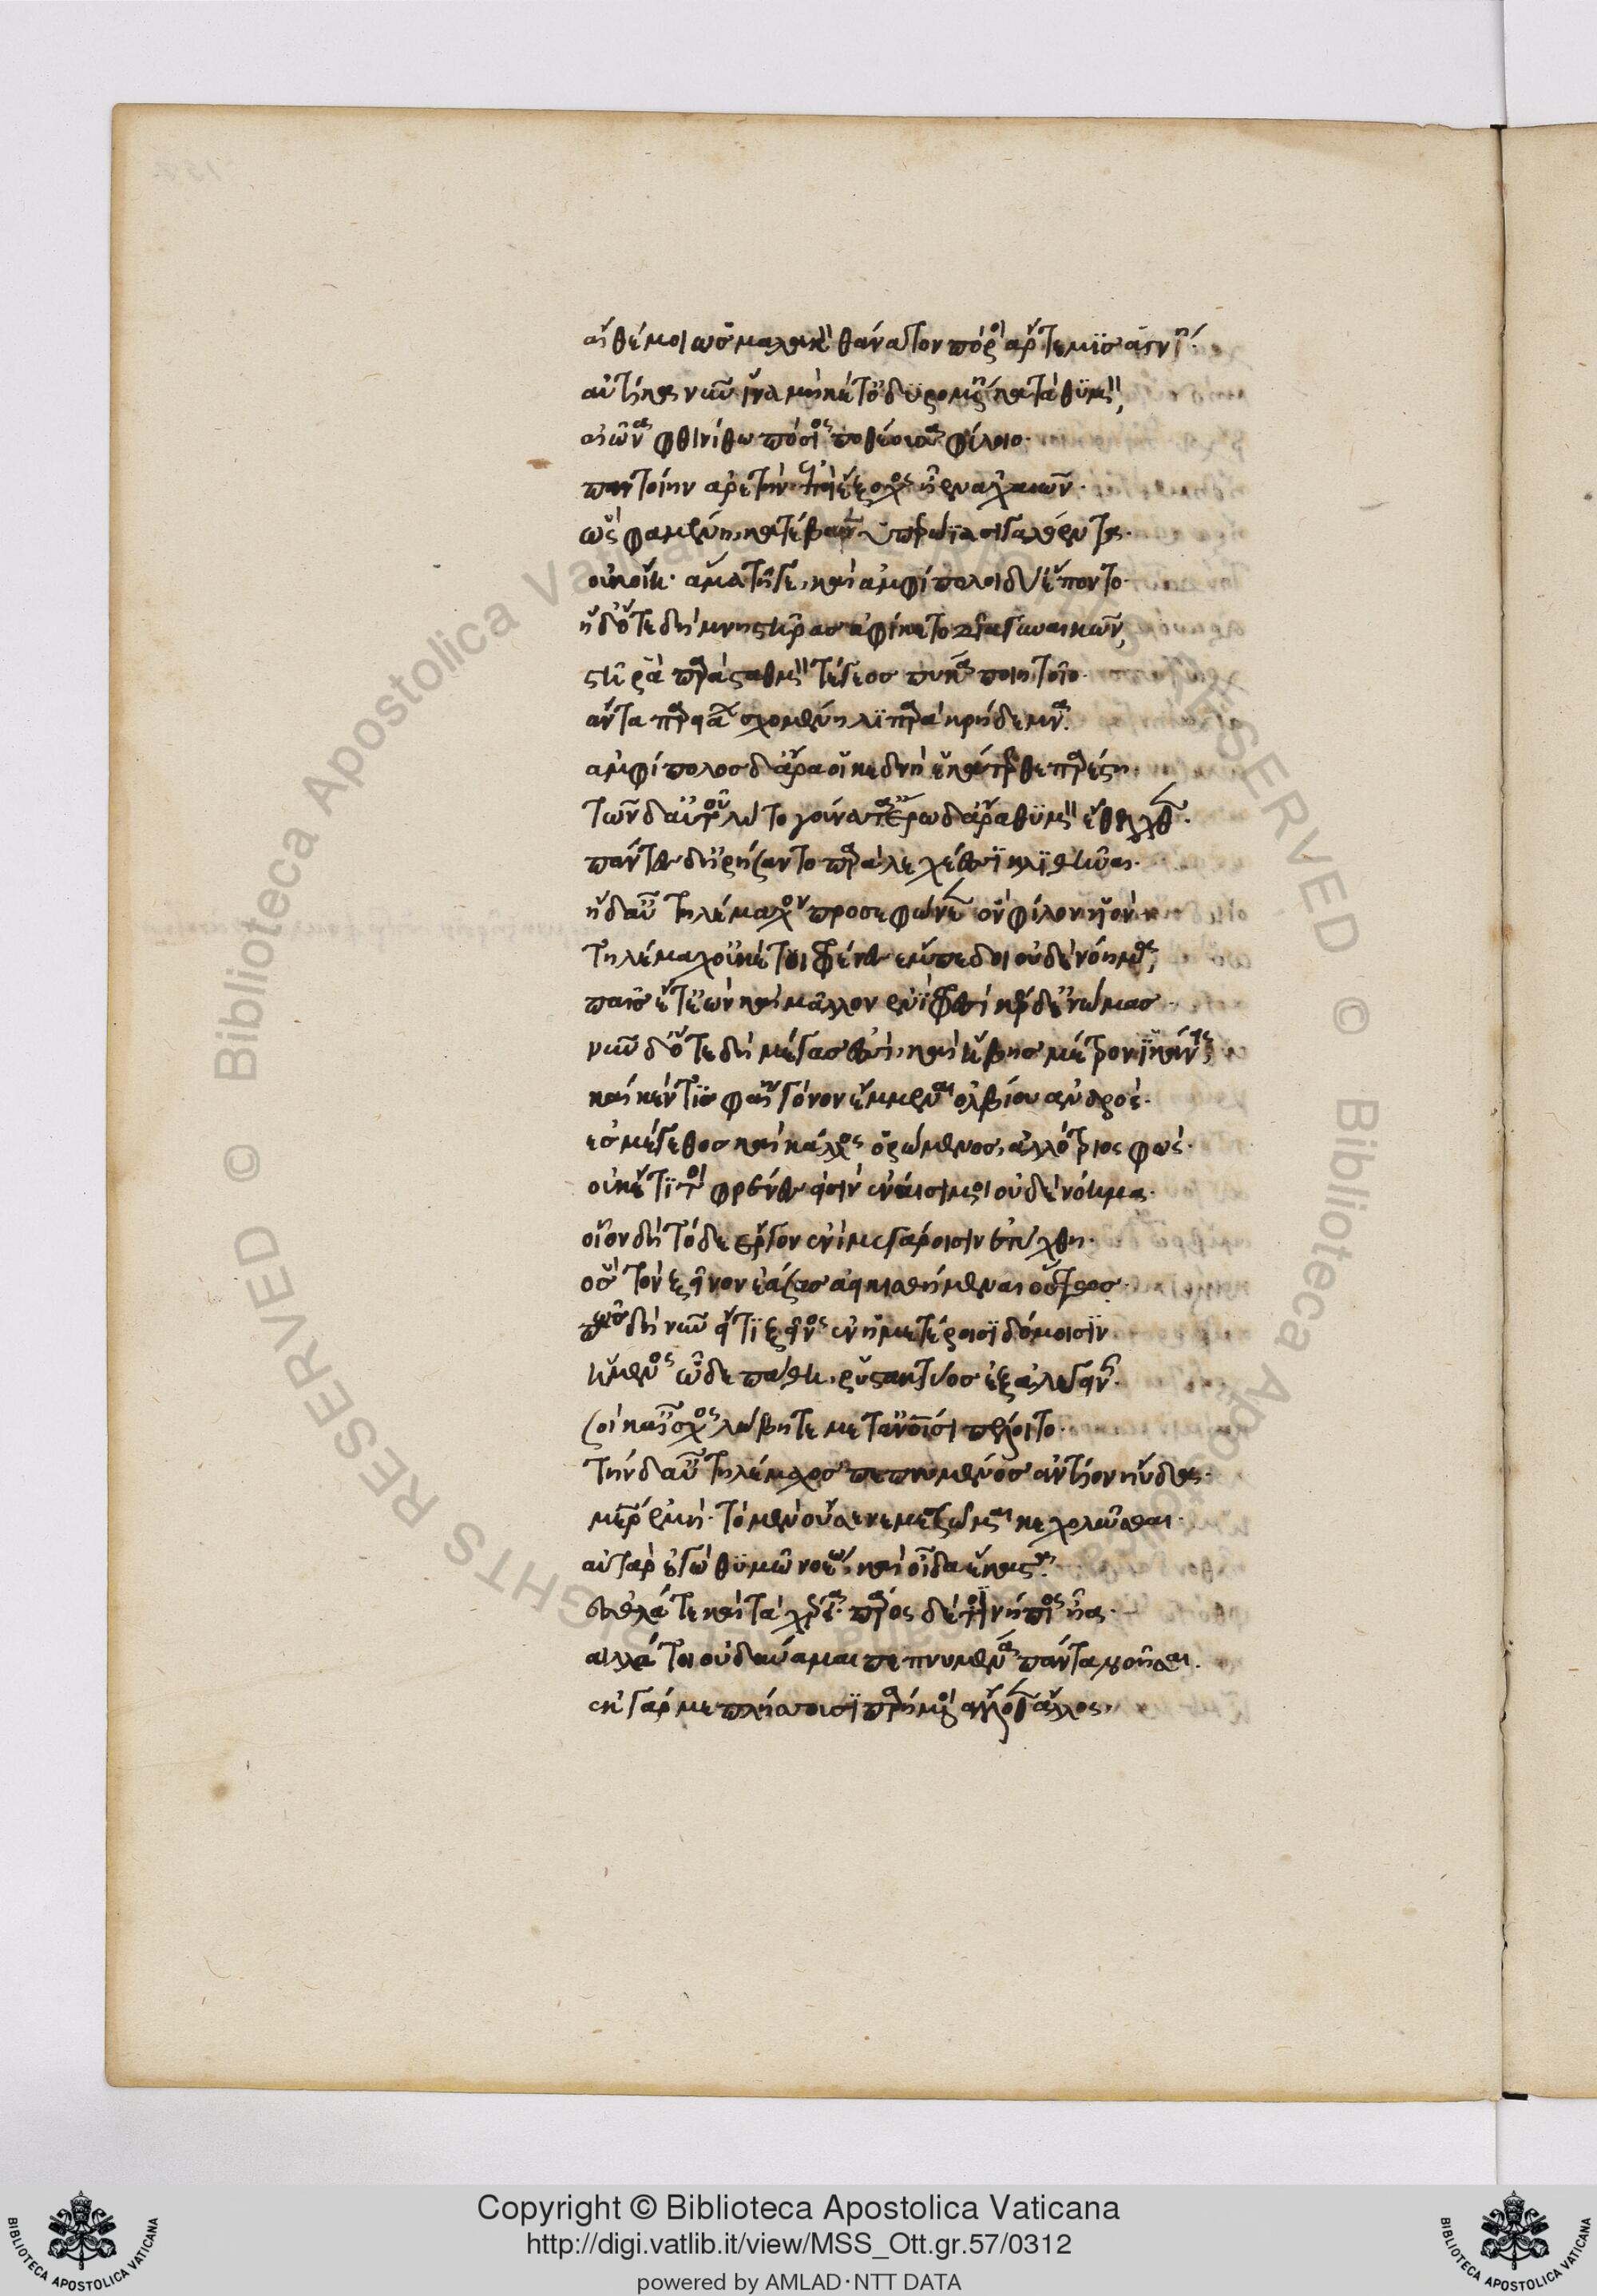 αἴθέ μοι ὡς μαλακὸν θάνατον πόροι ἄρτεμϊς ἁγνὴ·
αὐτίκα νῦν ἵνα μηκέτ ὀδυρομένη κατὰ θϋμὸν,
αἰῶνα φθινύθω πόσιος ποθέουσα φίλοιο·
παντοίην ἀρετὴν· ἐπεὶ ἔξοχος ἦεν ἀχαιῶν·
ὣς φαμένη, κατέβαιν ὑπερώϊα σιγαλόεντα·
οὐκ οἴη· ἅμα τῆγε, καὶ ἀμφίπολοι δύ ἕποντο·
ἡ δ ὅτε δὴ μνηστῆρας ἀφίκετο δῖα γυναικῶν,
στῆ ῥὰ παρὰ σταθμὸν τέγεος πύκα ποιητοῖο·
ἄντα παρειάων σχομένη λϊπαρὰ κρήδεμνα·
ἀμφίπολος δ ἄρα οἱ κεδνὴ ἑκάτερθε παρέστη·
τῶν δ αὐτοῦ λύτο γούνατ ἔρω δ ἄρα θϋμὸν ἔθελχθεν·
πάντες δ ἠρήσαντο παραὶ λεχέεσσϊ κλϊθῆναι·
ἡ δ αὖ τηλέμαχον προσεφώνεεν ὃν φίλον υἱὸν·
τηλέμαχ οὐκέτι τοι φρένες ἔμπεδοι οὐδὲ νόημα,
παῖς ἔτ ἐὼν καὶ μᾶλλον ἐνὶ φρεσὶ κέρδε ἐνώμας·
νῦν δ ὅτε δὴ μέγας ἐσσὶ, καὶ ἥβης μέτρον ἱκάνεις
καί κέν τϊς φαίη γόνον ἔμμεναι ὀλβίου ἀνδρὸς·
ἐς μέγεθος καὶ κάλλος ὁρώμενος, ἀλλότριος φὼς·
οὐκέτϊ τοὶ φρένες εἰσὶν ἐναίσιμοι οὐδὲ νόημα·
οἷον δὴ τόδε ἔργον ἐνὶ μεγάροισιν ἐτύχθη·
ὃς τὸν ξεῖνον ἐάσας ἀεικισθήμεναι οὕτως·
πῶς δὴ νῦν εἴ τϊ ξεῖνος ἐν ἡμετέροισϊ δόμοισϊν
ἥμενος ὧδε πάθη, ῥυστακτύος ἐξ ἀλεγεινῆς·
σοὶ κ αἶσχος λώβη τε μετ ἀνθρώποισι πέλοιτο·
τὴν δ αὖ τηλέμαχος πεπνυμένος ἀντίον ηὔδα·
μῆτερ ἐμὴ· τὸ μὲν οὔ σε νεμεσσῶμαι κεχολῶσθαι·
αὐτὰρ ἐγὼ θϋμῶ νοέω, καὶ οἶδα ἕκαστα·
ἐσθλά τε καὶ τὰ χέρεια· πάρος δ ἔτϊ νήπιος ἦα·
ἀλλά τοι οὐ δύναμαι πεπνυμένα πάντα νοῆσαι·
ἐκ γάρ με πλήσσουσϊ παρήμενοι ἄλλοθεν ἄλλος·
Copyright © Biblioteca Apostolica Vaticana
http://digi.vatlib.it/view/MSS_Ott.gr.57/0312
powered by AMLAD·NTT DATA